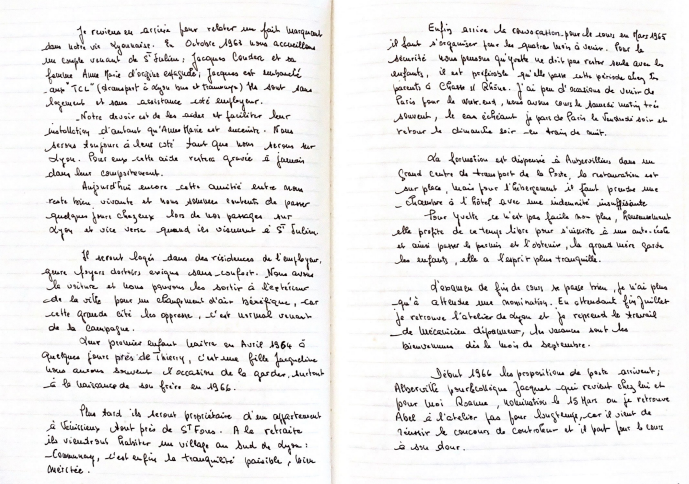 Je reviens en arrière pour relater un fait marquant
dans notre vie Lyonnaise. En Octobre 1963 nous accueillons
un couple venant de St Julien ; Jacques Couderc et sa
femme Anne Marie d'origine espagnole ; Jacques est embauché
aux "TCL" (transport à Lyon bus et tramways) Ils sont sans
logement et sans assistance côté employeur.
Notre devoir est de les aider et faciliter leur
installation d'autant qu'Anne Marie est enceinte. Nous
serons toujours à leur côté tant que nous serons sur
Lyon. Pour eux cette aide restera gravée à jamais
dans leur comportement.
Aujourd'hui encore cette amitié entre nous
reste bien vivante et nous sommes contents de passer
quelques jours chez eux lors de nos passages sur
Lyon et vice versa quand ils viennent à St Julien.
Ils seront logés dans des résidences de l'employeur,
genre foyers dortoirs exigus sans confort. Nous avons
la voiture et nous pouvons les sortir à l'extérieur
de la ville pour un changement d'air bénéfique, car
cette grande cité les oppresse, c'est normal venant
de la campagne.
Leur premier enfant naitra en Avril 1964 à
quelques jours près de Thierry, c'est une fille Jacqueline
nous aurons souvent l'occasion de la garder surtout
à la naissance de son frère en 1966.
Plus tard ils seront propriétaire d'un appartement
à Vénissieux tout près de St Fons. A la retraite
ils viendront habiter un village au sud de Lyon :
Communay, c'est enfin la tranquilité paisible, bien
méritée.
Enfin arrive la convocation pour le cours en Mars 1965
il faut s'organiser pour les quatre mois à venir. Pour la
sécurité nous pensons qu'Yvette ne doit pas rester seule avec les
enfants, il est préférable qu'elle passe cette période chez les
parents à Chasse s/ Rhône. J'ai peu d'occasions de venir de
Paris pour le week-end, nous avons cours le samedi matin très
souvent, le cas échéant je pars de Paris le Vendredi soir et
retour le dimanche soir en train de nuit.
La formation est dispensée à Aubervilliers dans un
Grand centre de transport de la Poste, la restauration est
sur place, mais pour l'hébergement il faut prendre une
chambre à l'hôtel avec une indemnité insuffisante
Pour Yvette ce n'est pas facile non plus, heureusement
elle profite de ce temps libre pour s'inscrire à une auto-école
et ainsi passer le permis et l'obtenir, la grand mère garde
les enfants, elle a l'esprit plus tranquille.
L'examen de fin de cours se passe bien, je n'ai plus
qu'à attendre une nomination. En attendant fin Juillet
je retrouve l'atelier de Lyon et je reprend le travail
de Mécanicien dépanneur, les vacances sont les
bienvenues dès le mois de septembre.
Début 1966 les propositions de poste arrivent ;
Alberville pour collègue Jacquet qui revient chez lui et
pour moi Roanne, nomination le 15 Mars ou je retrouve
Abel à l'atelier pas pour longtemps, car il vient de
réussir le concours de Controleur et il part pour le cours
à son tour.